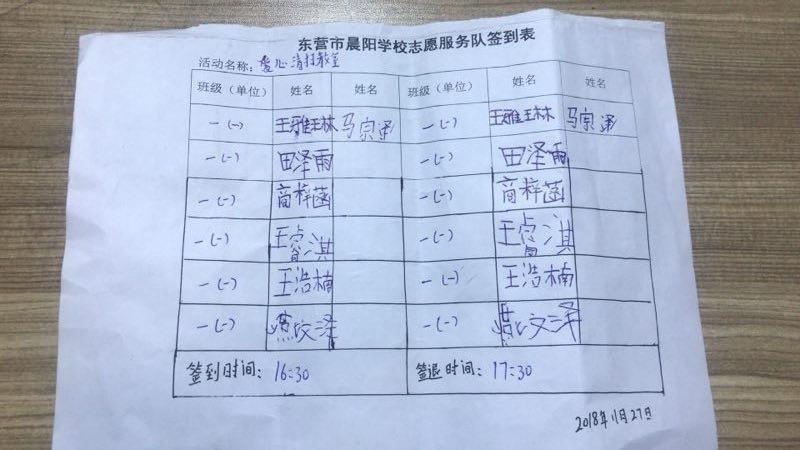 东营市晨阳学校志愿服务队签到表
活动名称：爱心清扫教室
班级（单位） 姓名 姓名 班级（单位） 姓名 姓名
一(一) 王雅琳 马宗泽 一(一) 王雅琳 马宗泽
一(一) 田泽雨 一(一) 田泽雨
一(一) 商梓菡 一(一) 商梓菡
一(一) 王睿淇 一(一) 王睿淇
一(一) 王浩楠 一(一) 王浩楠
一(一) 燕姣泽 一(一)
签到时间：16:30 签退时间：17:30
2018年11月27日